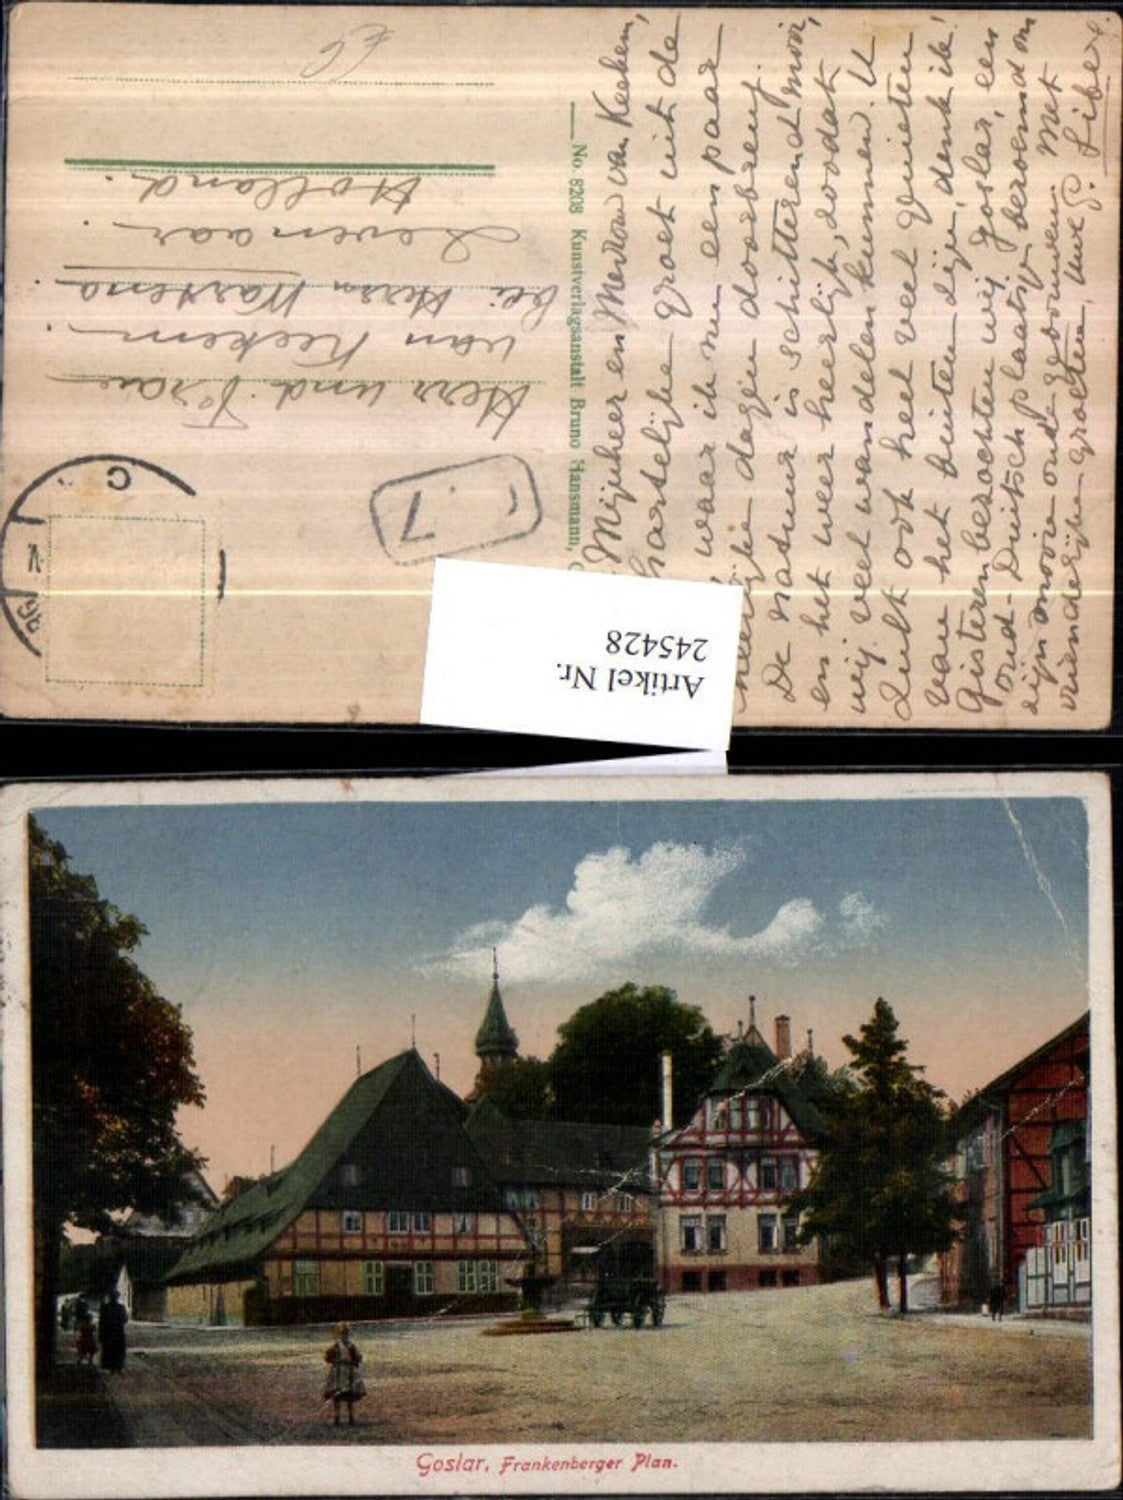 Mijnheer en Mevrouw van Keekem,
Hartelijke groet uit de
waar ik nu een paar
heerlijke dagen doorbreng.
De natuur is schitterend mooi,
en het weer heerlijk, zoodat
wij veel wandelen kunnen. U
zult ook heel veel genieten
van het buiten zijn, denk ik!
Gisteren bezochten wij Goslar, een
oud-Duitsch plaatsje beroemd om
zijn mooie oude gebouwen. Met
vriendelijke groeten, Uwe
No. 8208 Kunstverlagsanstalt Bruno Hansmann,
Herr und Frau
van Keekem.
bei Herrn Martena
Zevenaar.
Holland.
7
C
Artikel Nr.
245428
Goslar, Frankenberger Plan.